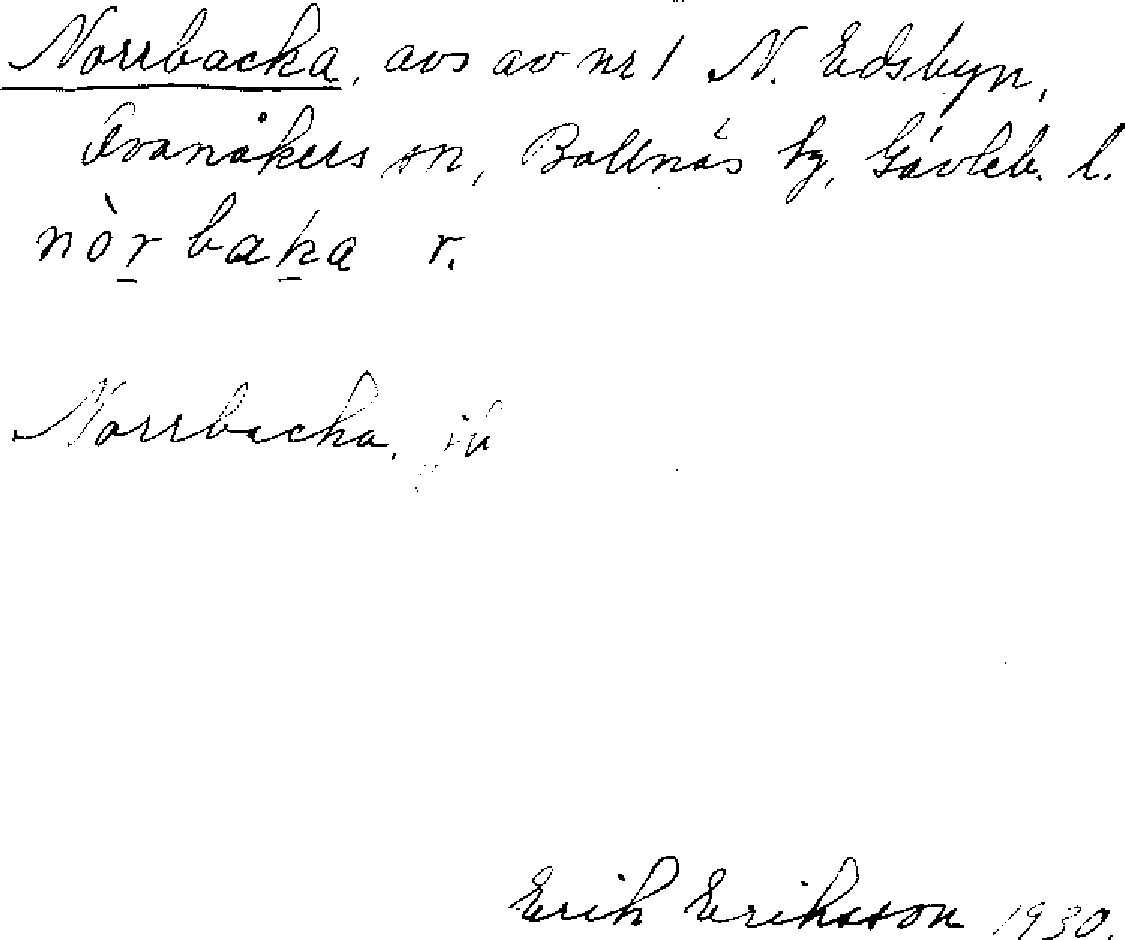 Norrbacka, avs av nr 1 N. Edsbyn,
Ovanåkers sn, Bollnäs tg, Gävleb. l.
nòr baka r.
Norrbacka, jb
Erik Eriksson 1930.